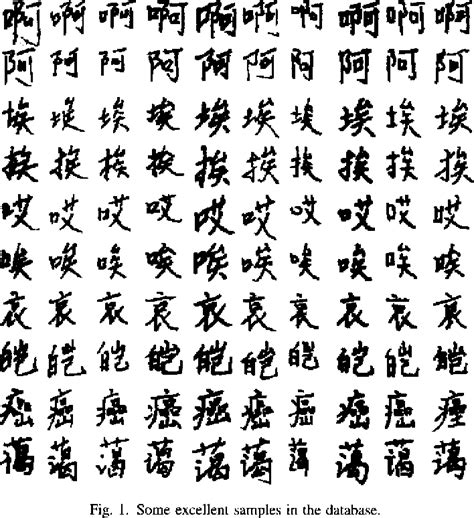 啊啊啊啊啊啊啊啊啊啊
阿阿阿阿阿阿阿阿阿阿
埃埃埃埃埃埃埃埃埃埃
挨挨挨挨挨挨挨挨挨挨
哎哎哎哎哎哎哎哎哎哎
唉唉唉唉唉唉唉唉唉唉
哀哀哀哀哀哀哀哀哀哀
皑皑皑皑皑皑皑皑皑皑
癌癌癌癌癌癌癌癌癌癌
蔼蔼蔼蔼蔼蔼蔼蔼蔼蔼
Fig. 1. Some excellent samples in the database.